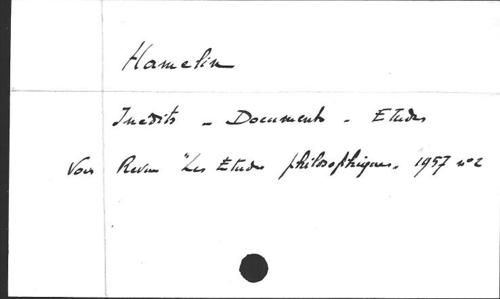 Hamelin
Inedits - Documents - Etudes
Voir Revue "Les Etudes philosophiques. 1957 n°2